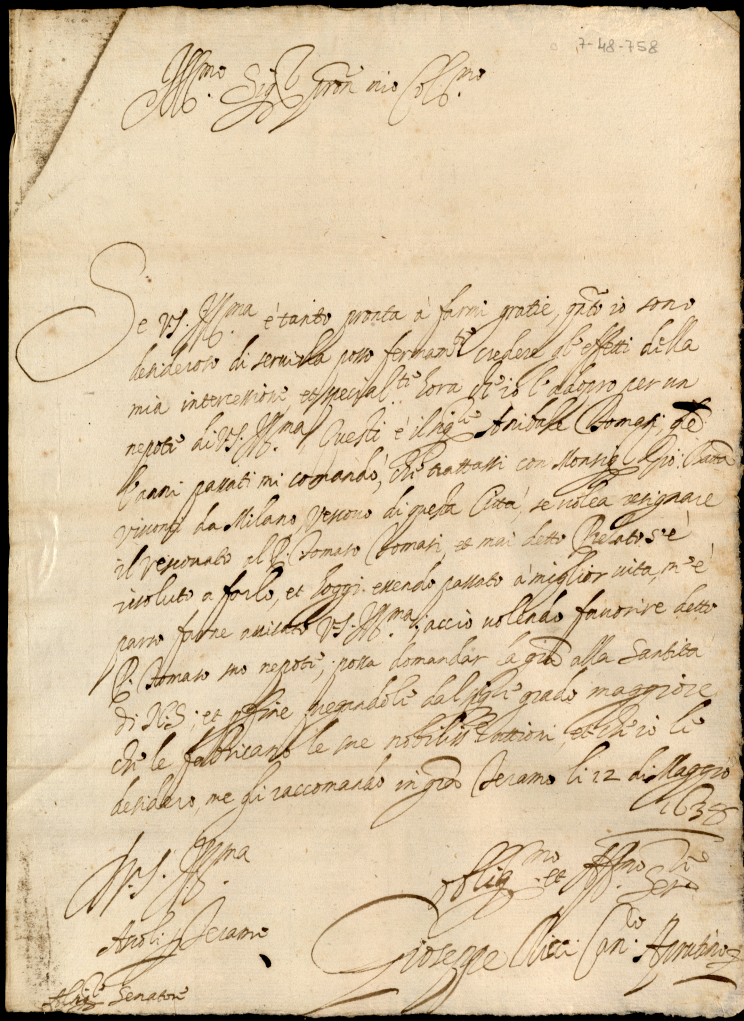 7-48-758
Ill.mo Sig.r Pron mio Col.mo
Se VS. Ill.ma è tanto pronta à farmi gratie, q.nto io sono
desideroso di servirla posso fermam.te credere gl'effetti della
mia intercessione et special.te hora ch'io l'adopro per un
nepote di VS. Ill.ma Questi è il sig.re Anibale Tomasi,
l'anni passati mi comandò, che trattassi con Monsig.
Visconti da Milano Vescovo di questa Città, se volea resignare
il vescovato al P. Tomaso Tomasi, et mai detto Prelato s'è
risoluto a farlo, et hoggi essendo passato à miglior vita, m'è
parso farne avisato VS. Ill.ma acciò volendo favorire detto
P. Tomaso suo nepote, possa domandar la gra alla Santità
di N.S; et pregandole dal sig.re grado maggiore
che le fabbricano le sue nobiliss.e attioni, et ch'io le
desidero, me gli raccomando in gra Teramo li 12 di Maggio
1638
D.V.S. Ill.ma
Oblig.mo et Aff.mo Ser.re
Ascoli p Teramo
Gioseppe Ricci Can.co Aprutino
Senatore